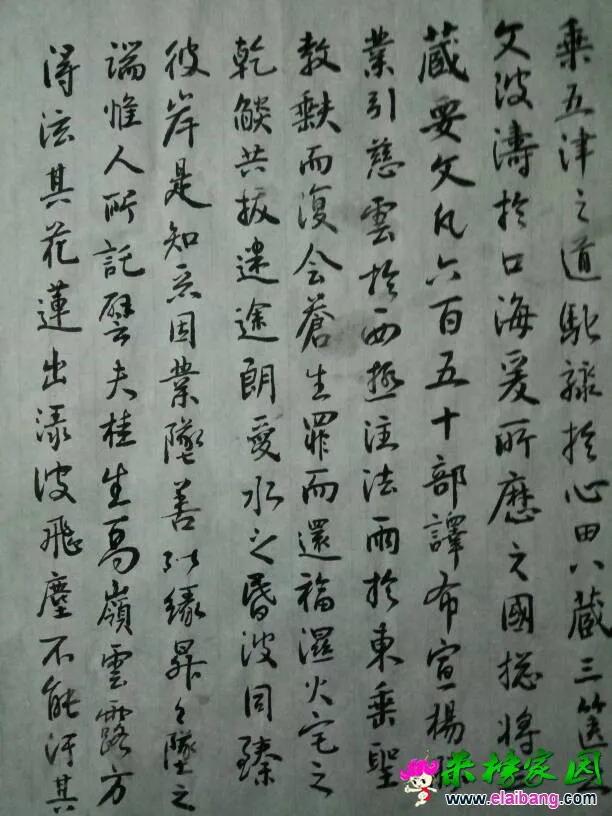 乘五津之道馳驟於心田八藏三篋之
文波濤於口海爰所歷之國揔將三
藏要文凡六百五十部譯布宣楊勝
業引慈雲於西極注法雨於東垂聖
教缺而復全蒼生罪而還福濕火宅之
乾燄共拔迷途朗愛水之昏波同臻
彼岸是知惡因業墜善以緣昇々墜之
端惟人所託譬夫桂生高嶺雲露方
得泫其花蓮出淥波飛塵不能汙其
来榜家园
www.elaibang.com